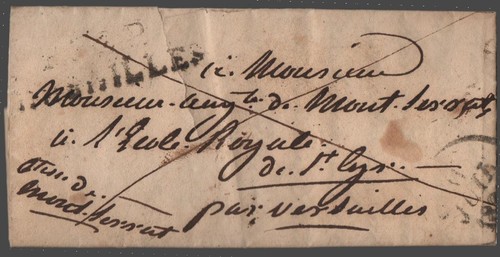 à Monsieur
Monsieur aug.te de Mont-Serrat
à l'École Royale
de St Cyr.
par Versailles
de
Mont-Serrat